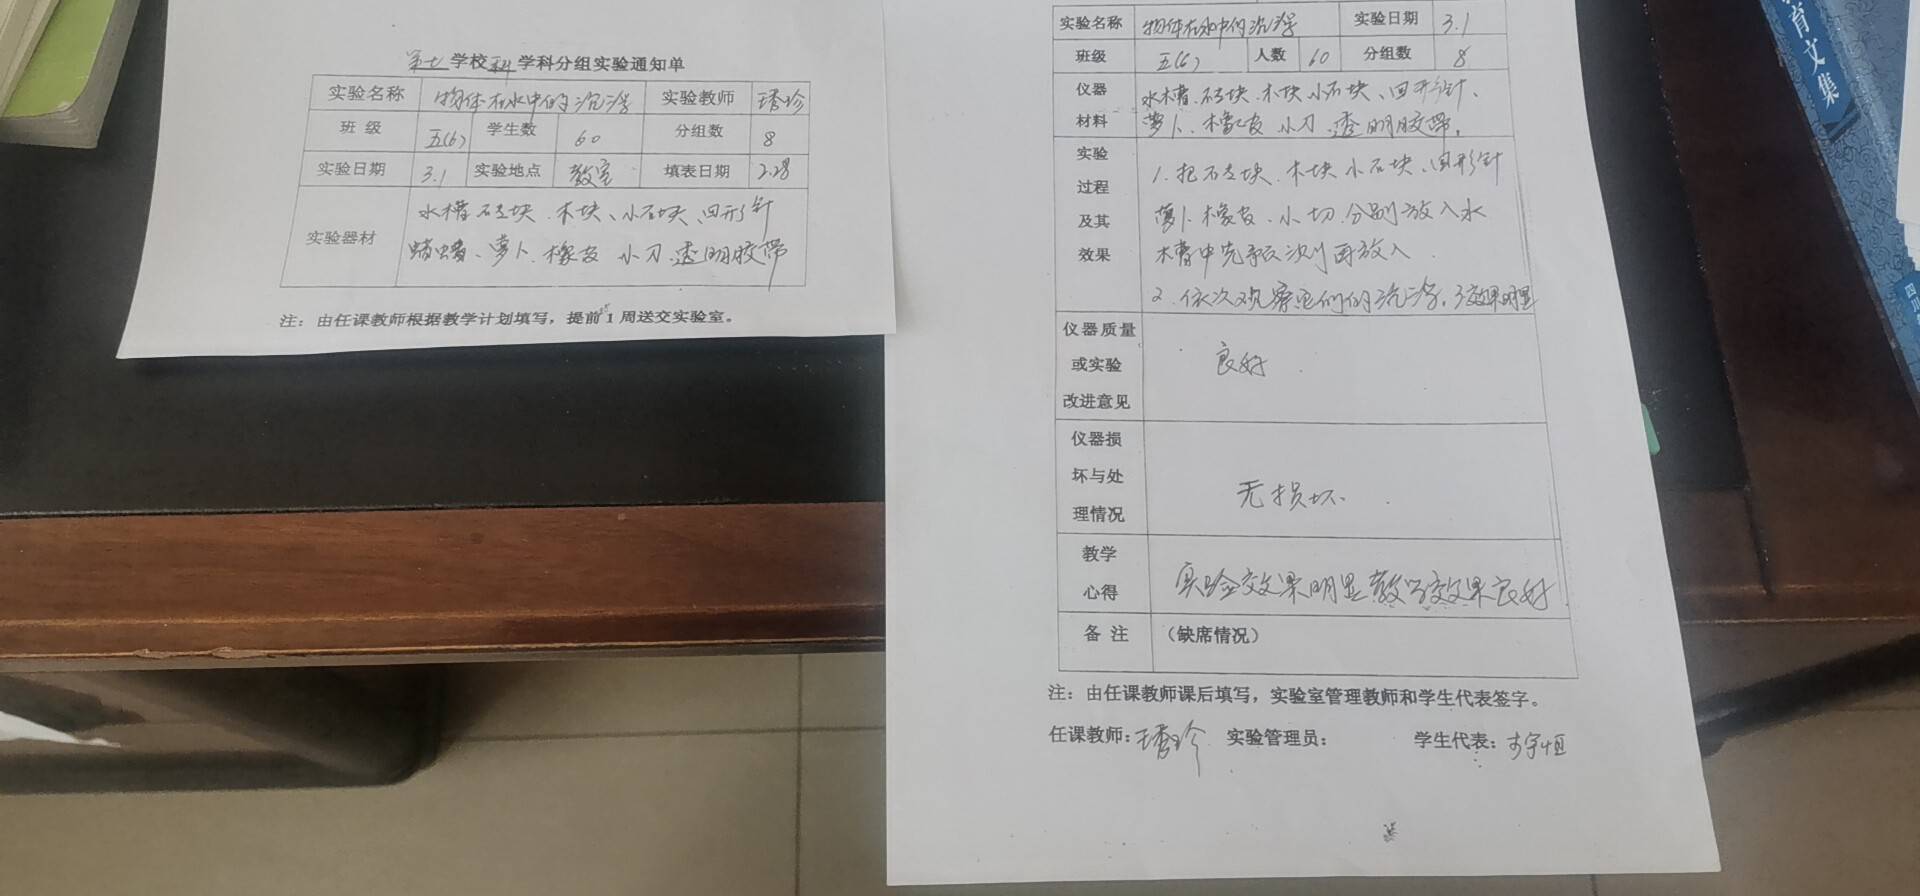 第七学校科学科分组实验通知单
实验名称 物体在水中的沉浮 实验教师 秀珍
班 级 五(6) 学生数 60 分组数 8
实验日期 3.1 实验地点 教室 填表日期 2.28
实验器材 水槽 砖块 木块、小石块、回形针
蜡烛、萝卜 橡皮 小刀 透明胶带
注：由任课教师根据教学计划填写，提前1周送交实验室。
实验名称 物体在水中的沉浮 实验日期 3.1
班级 五(6) 人数 60 分组数 8
仪器 水槽、砖块、木块 小石块、回形针、
材料 萝卜、橡皮 小刀 透明胶带。
实验
过程
及其
效果
1. 把砖块、木块 小石块、回形针
萝卜 橡皮、小切 分别放入水
槽中先预测再放入
2. 依次观察它们的沉浮。效果明显
仪器质量
或实验
改进意见
良好
仪器损
坏与处
理情况
无损坏
教学
心得
实验效果明显教学效果良好
备 注 （缺席情况）
注：由任课教师课后填写，实验室管理教师和学生代表签字。
任课教师：秀珍 实验管理员： 学生代表：宇恒
育文集
四川